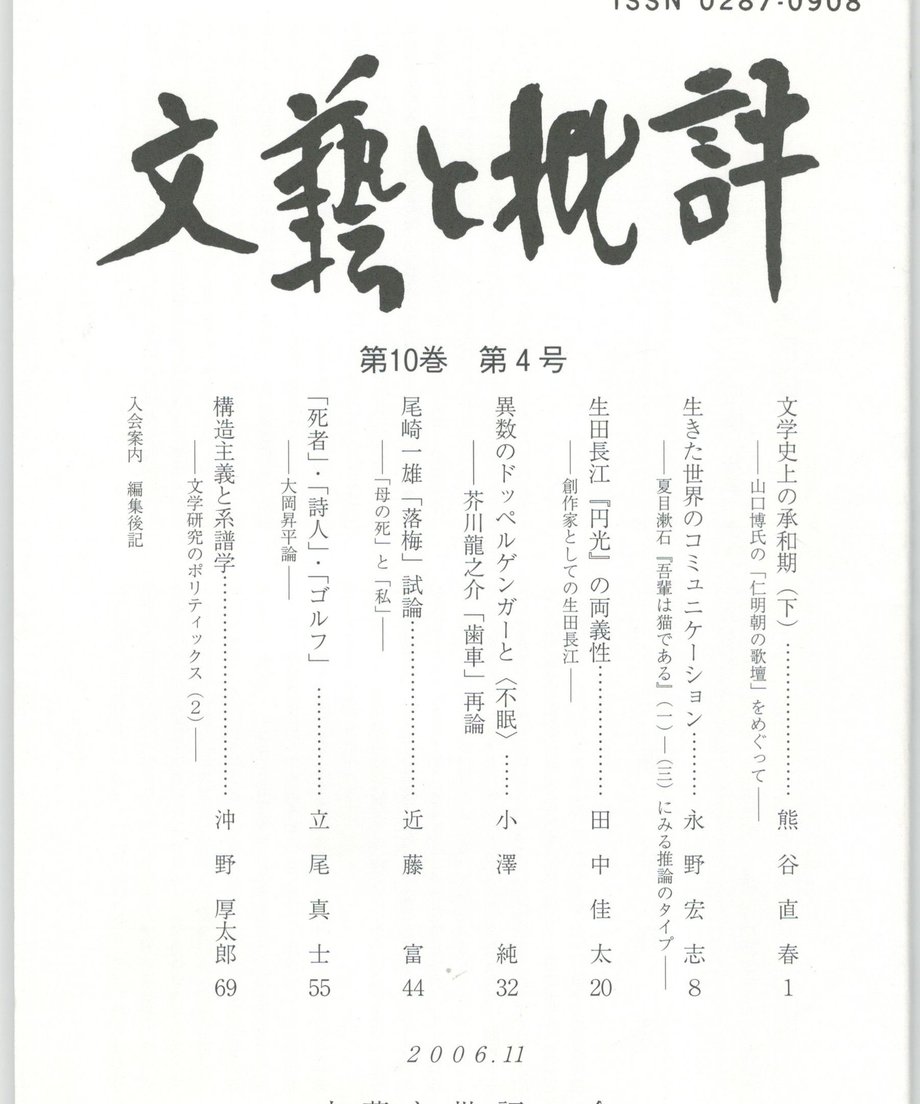 ISSN 0287-0908
文藝と批評
第10巻　第4号
文学史上の承和期（下）……………… 熊谷直春 1
――山口博氏の「仁明朝の歌壇」をめぐって――
生きた世界のコミュニケーション……… 永野宏志 8
――夏目漱石『吾輩は猫である』（一）―（三）にみる推論のタイプ――
生田長江『円光』の両義性……………… 田中佳太 20
――創作家としての生田長江――
異数のドッペルゲンガーと〈不眠〉…… 小澤純 32
――芥川龍之介「歯車」再論
尾崎一雄「落梅」試論…………………… 近藤富 44
――「母の死」と「私」――
「死者」・「詩人」・「ゴルフ」 ……………… 立尾真士 55
――大岡昇平論――
構造主義と系譜学………………………… 沖野厚太郎 69
――文学研究のポリティックス（2）――
入会案内　編集後記
2006.11